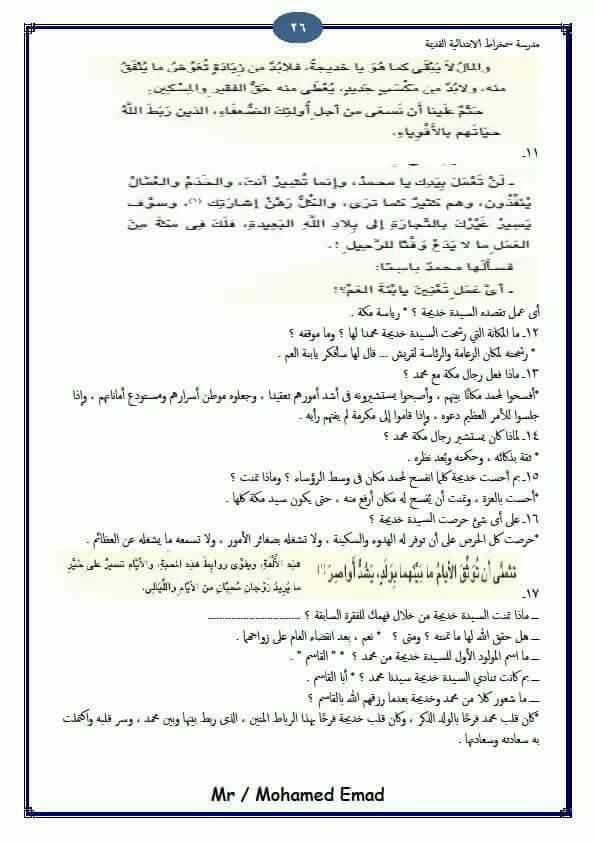 ٢٦
مدرسة سمخراط الابتدائية القديمة
والمالُ لا يَبْقَى كما هُوَ يا خديجةُ، فلابُدَّ من زيادةٍ تُعَوِّضُ ما يُنْفَقُ
منه، ولابُدَّ من مَكْسَبٍ جديدٍ، يُعْطَى منه حَقُّ الفقيرِ والمِسْكينِ.
حَتْمٌ علينا أن نَسعَى من أجلِ أُولئكَ الضُّعَفَاءِ، الذين رَبَطَ اللَّهُ
حياتَهم بالأَقْوياءِ.
١١ـ
ـ لَنْ تَعْمَلَ بِيَدِكَ يا محمدُ، وإنما تُشِيرُ أنتَ، والخَدَمُ والعُمَّالُ
يُنَفِّذُون، وهم كثيرٌ كما تَرَى، والكُلُّ رَهْنُ إشارَتِكَ (١)، وسوْف
يَسِيرُ غَيْرُكَ بالتِّجارَةِ إلى بِلادِ اللَّهِ البَعِيدةِ، فلَكَ فى مكةَ مِنَ
العَمَلِ ما لا يَدَعُ وَقْتًا للرَّحِيلِ!.
فسألَها محمدٌ باسمًا:
ـ أىَّ عملٍ تَعْنِينَ يابْنَةَ العَمِّ؟!
أى عمل تقصده السيدة خديجة ؟ * رياسة مكة .
١٢ـ ما المكانة التي رشحت السيدة خديجة محمدا لها ؟ وما موقفه ؟
* رشحته لمكان الزعامة والرئاسة لقريش ... قال لها سأفكر يابنة العم .
١٣ـ ماذا فعل رجال مكة مع محمد ؟
*أفسحوا لمحمد مكانًا بينهم ، وأصبحوا يستشيرونه فى أشد أمورهم تعقيدا ، وجعلوه موطن أسرارهم ومستودع أماناتهم ، وإذا
جلسوا للأمر العظيم دعوه ، وإذا قاموا إلى مكرمة لم يفتهم رأيه .
١٤ـ لماذا كان يستشير رجال مكة محمد ؟
* ثقة بذكائه ، وحكمته وبُعد نظره .
١٥ـ بم أحست خديجة كلما انفسح لمحمد مكان فى وسط الرؤساء ؟ وماذا تمنت ؟
*أحست بالعزة ، وتمنت أن يُفسح له مكان أرفع منه ، حتى يكون سيد مكة كلها .
١٦ـ على أى شئ حرصت السيدة خديجة ؟
*حرصت كل الحرص على أن توفر له الهدوء والسكينة ، ولا تشغله بصغائر الأمور ، ولا تسمعه ما يشغله عن العظائم .
تتمنَّى أن تُوثِّقَ الأيامُ ما بَيْنَهُما بِوَلَدٍ، يَشُدُّ أَواصِرَ(١) هذه الأُلْفَةِ، ويقوِّى روابطَ هذه المحبةِ، والأيَّامُ تسيرُ على خَيْرِ
ما يُرِيدُ زَوْجانِ مُحبَّانِ من الأيَّامِ واللَّيالِى.
١٧ـ
ـ ماذا تمنت السيدة خديجة من خلال فهمك للفقرة السابقة ؟ ..............................
ـ هل حقق الله لها ما تمنته ؟ ومتى ؟ * نعم ، بعد انقضاء العام على زواجهما .
ـ ما اسم المولود الأول للسيدة خديجة من محمد ؟ * " القاسم " .
ـ بم كانت تنادي السيدة خديجة سيدنا محمد ؟ * أبا القاسم .
ـ ما شعور كلا من محمد وخديجة بعدما رزقهم الله بالقاسم ؟
*كان قلب محمد فرحًا بالولد الذكر ، وكان قلب خديجة فرحًا بهذا الرباط المتين ، الذى ربط بينها وبين محمد ، وسر قلبه واكتملت
به سعادته وسعادتها .
Mr / Mohamed Emad